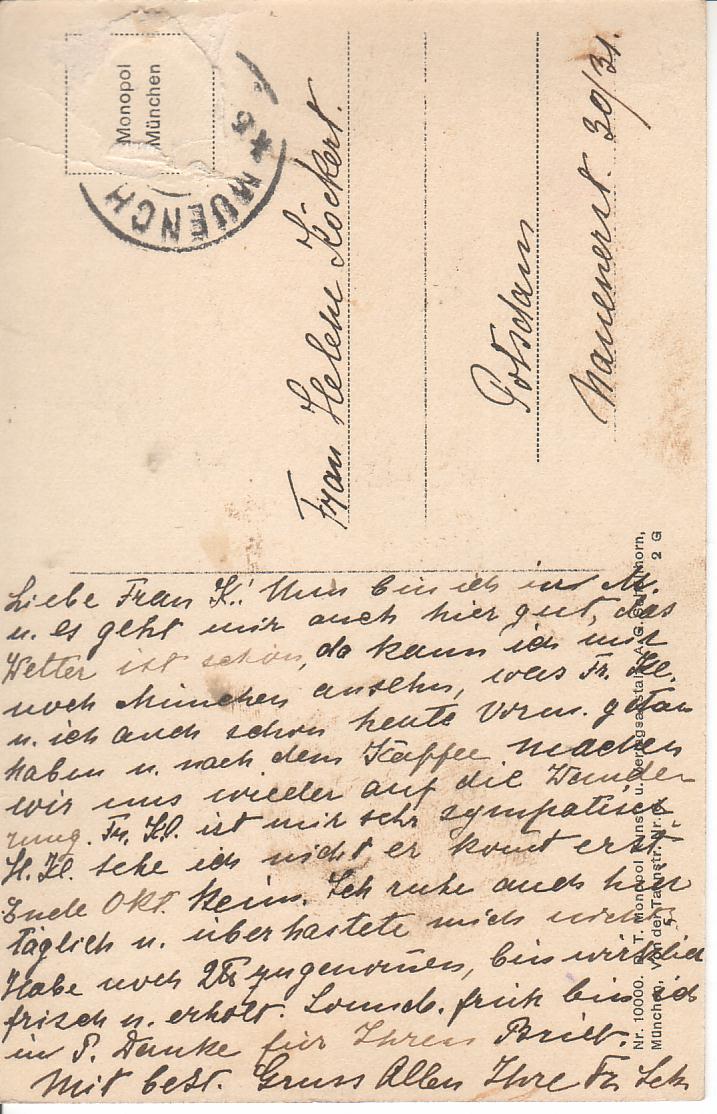 Monopol
München
MUENCH
Frau Helene Köckert.
Potsdam
Nauenerst. 30/31.
Liebe Frau K.! Nun bin ich in M.
u. es geht mir auch hier gut, das
Wetter ist schön, da kann ich mir
noch München ansehn, was Fr. Kl.
u. ich auch schon heute Vorm. getan
haben u. nach dem Kaffee machen
wir uns wieder auf die Wander-
rung. Fr. Kl. ist mir sehr sympatisch
H. Kl. sehe ich nicht er komt erst
Ende Okt. heim. Ich ruhe auch hier
täglich u. überhastete mich nicht
Habe noch 2 zugenomen, bin wirklich
frisch u. erholt. Sonnab. früh bin ich
in P. Danke für Ihren Brief.
Mit best. Gruss Allen Ihre Fr. Sch
Nr. 10000. T. Monopol Kunst- u. Verlagsanstalt A. G. Schöllhorn,
München, Von der Tannstr. Nr. 2 G